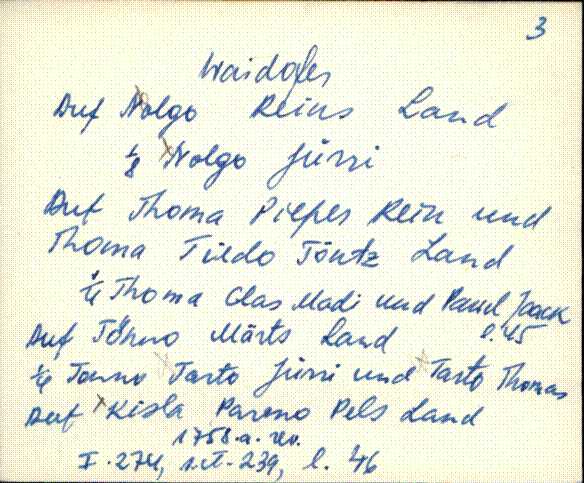 3
Waidofer
Auf Nolgo Reins Land
1/8 Nolgo Jürri
Auf Thoma Piepes Rein und
Thoma Tiedo Töntz Land
1/4 Thoma Clas Madi und Paud Jaack
Auf Töhno Märts Land l. 45
1/4 Tonno Tarto Jürri und Tarto Thomas
Auf Kisla Pareno Pels Land
1758. a. rev.
I. 274, 239, l. 46